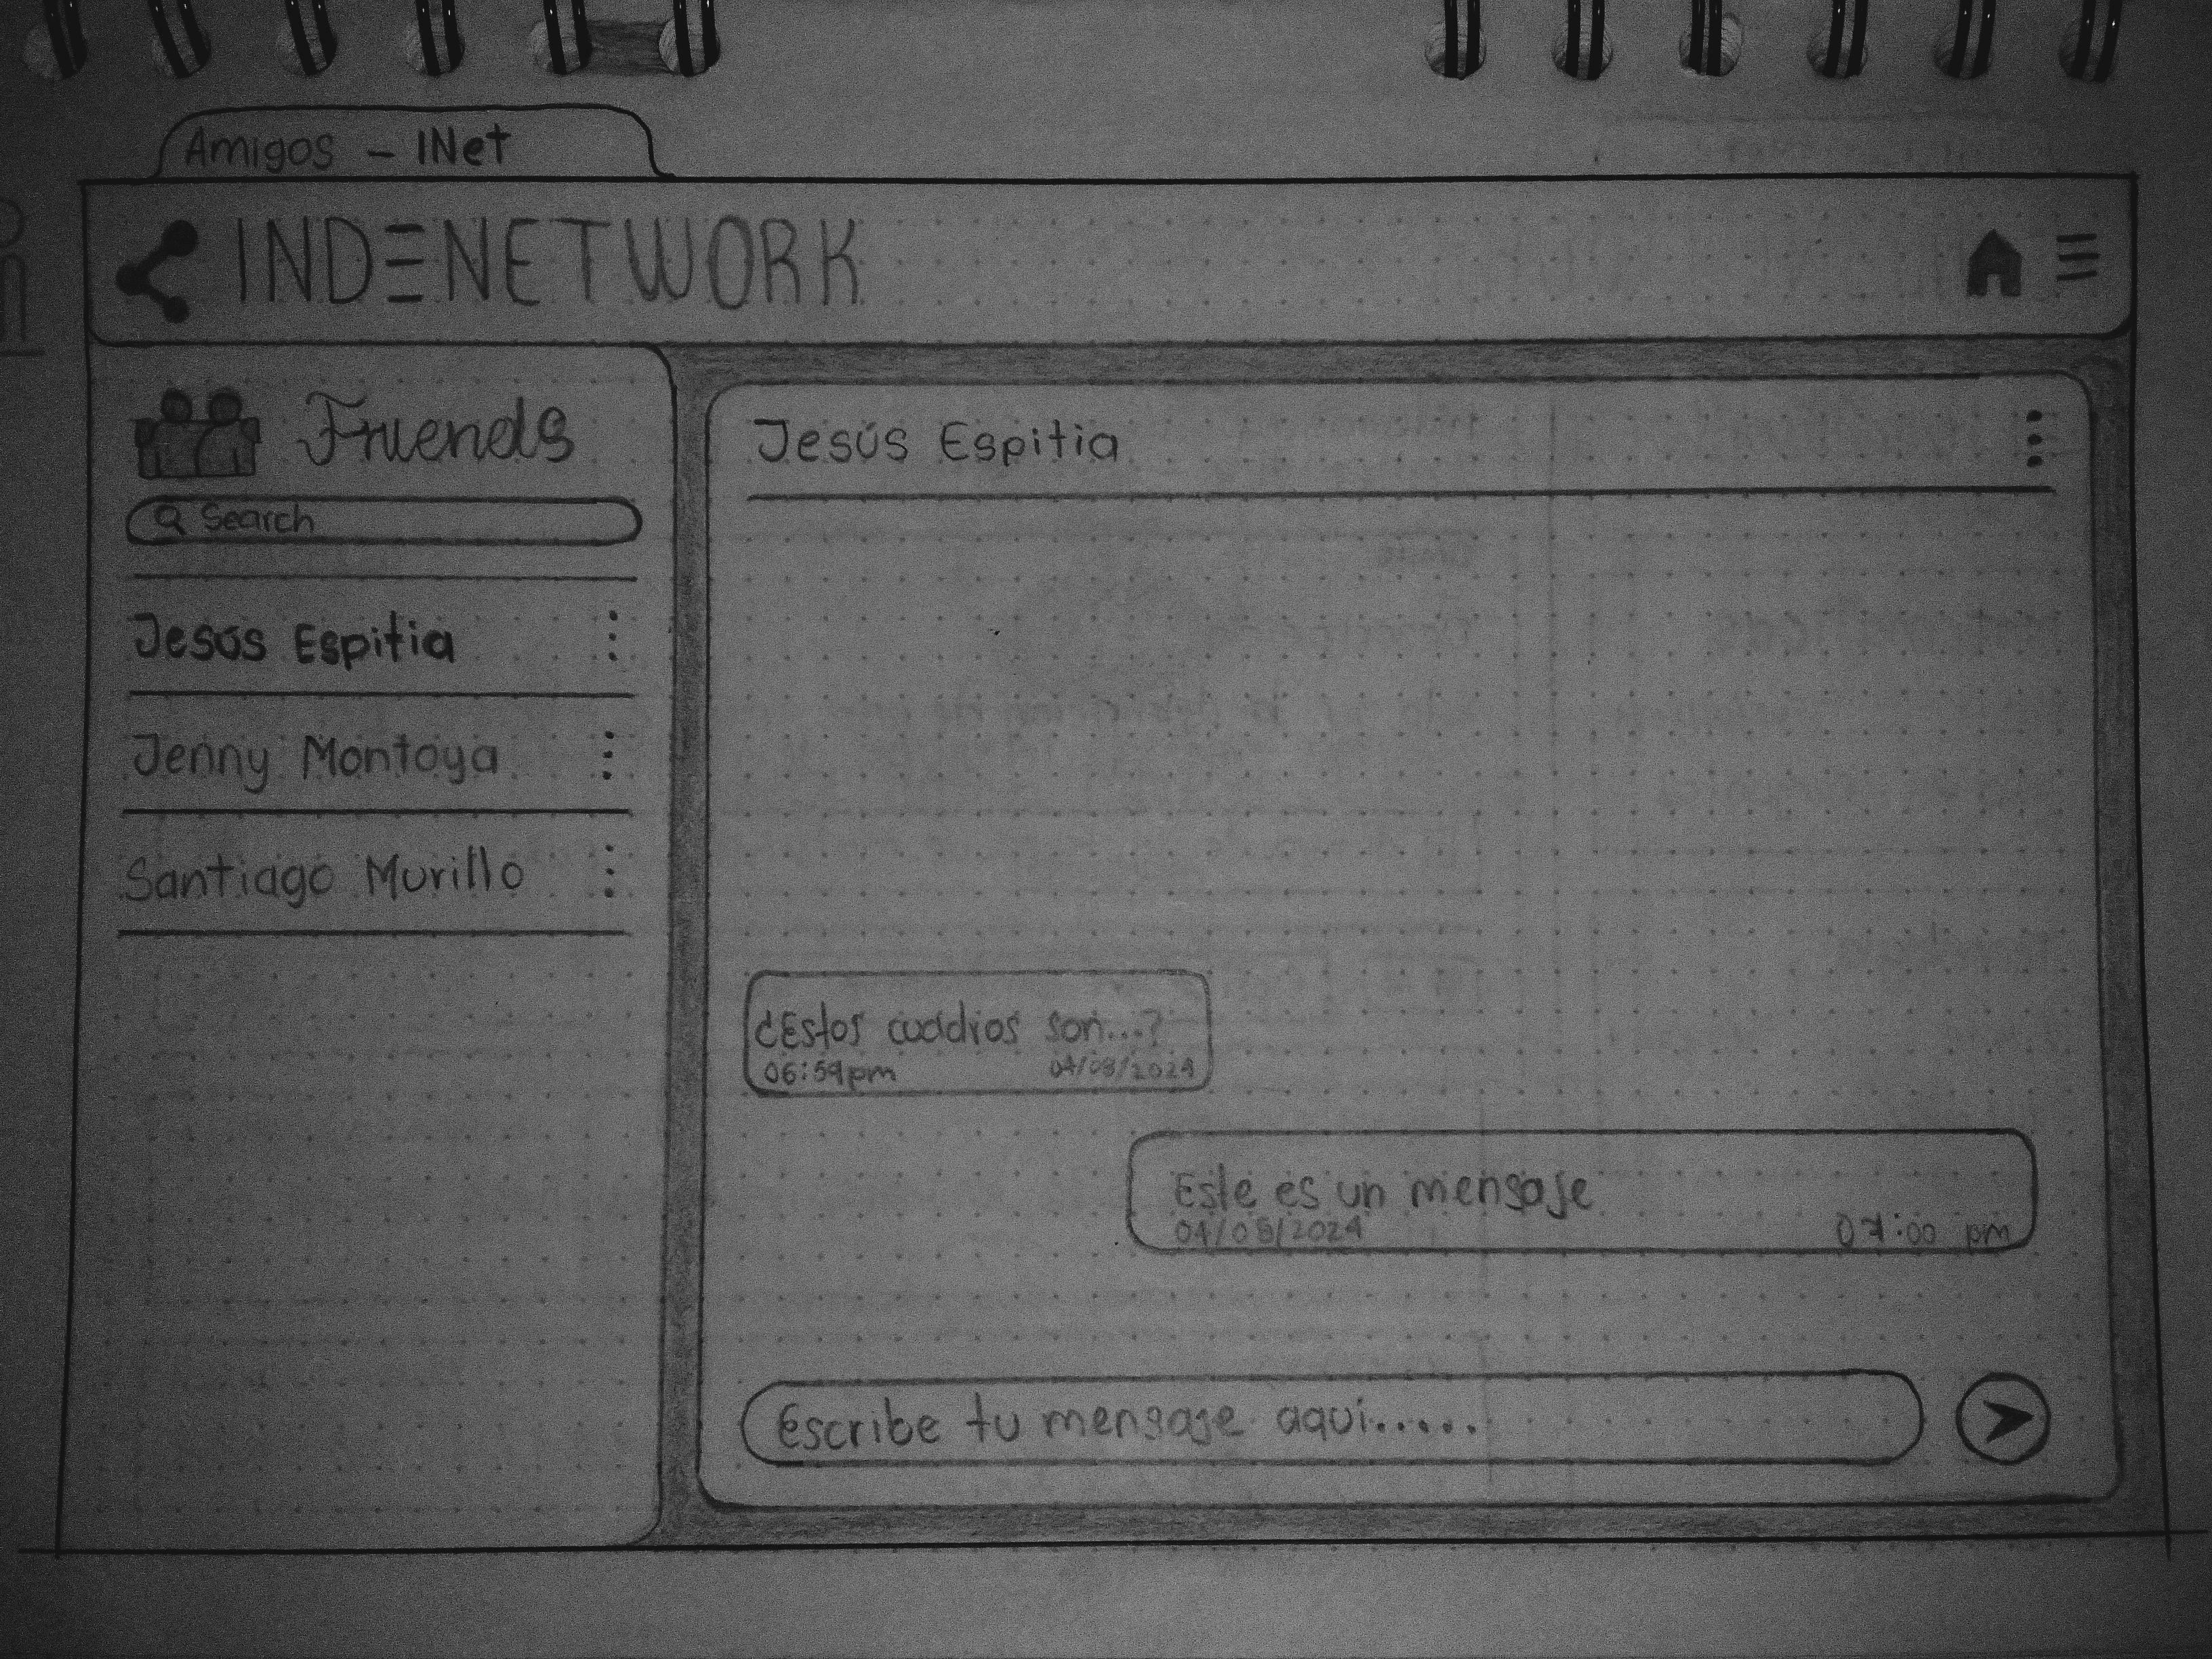 Amigos - INet
INDENETWORK
Friends
Search
Jesús Espitia
Jenny Montoya
Santiago Murillo
Jesús Espitia
¿Estos cuadros son...?
06:59pm 04/08/2024
Este es un mensaje
04/08/2024 07:00 pm
Escribe tu mensaje aqui.....